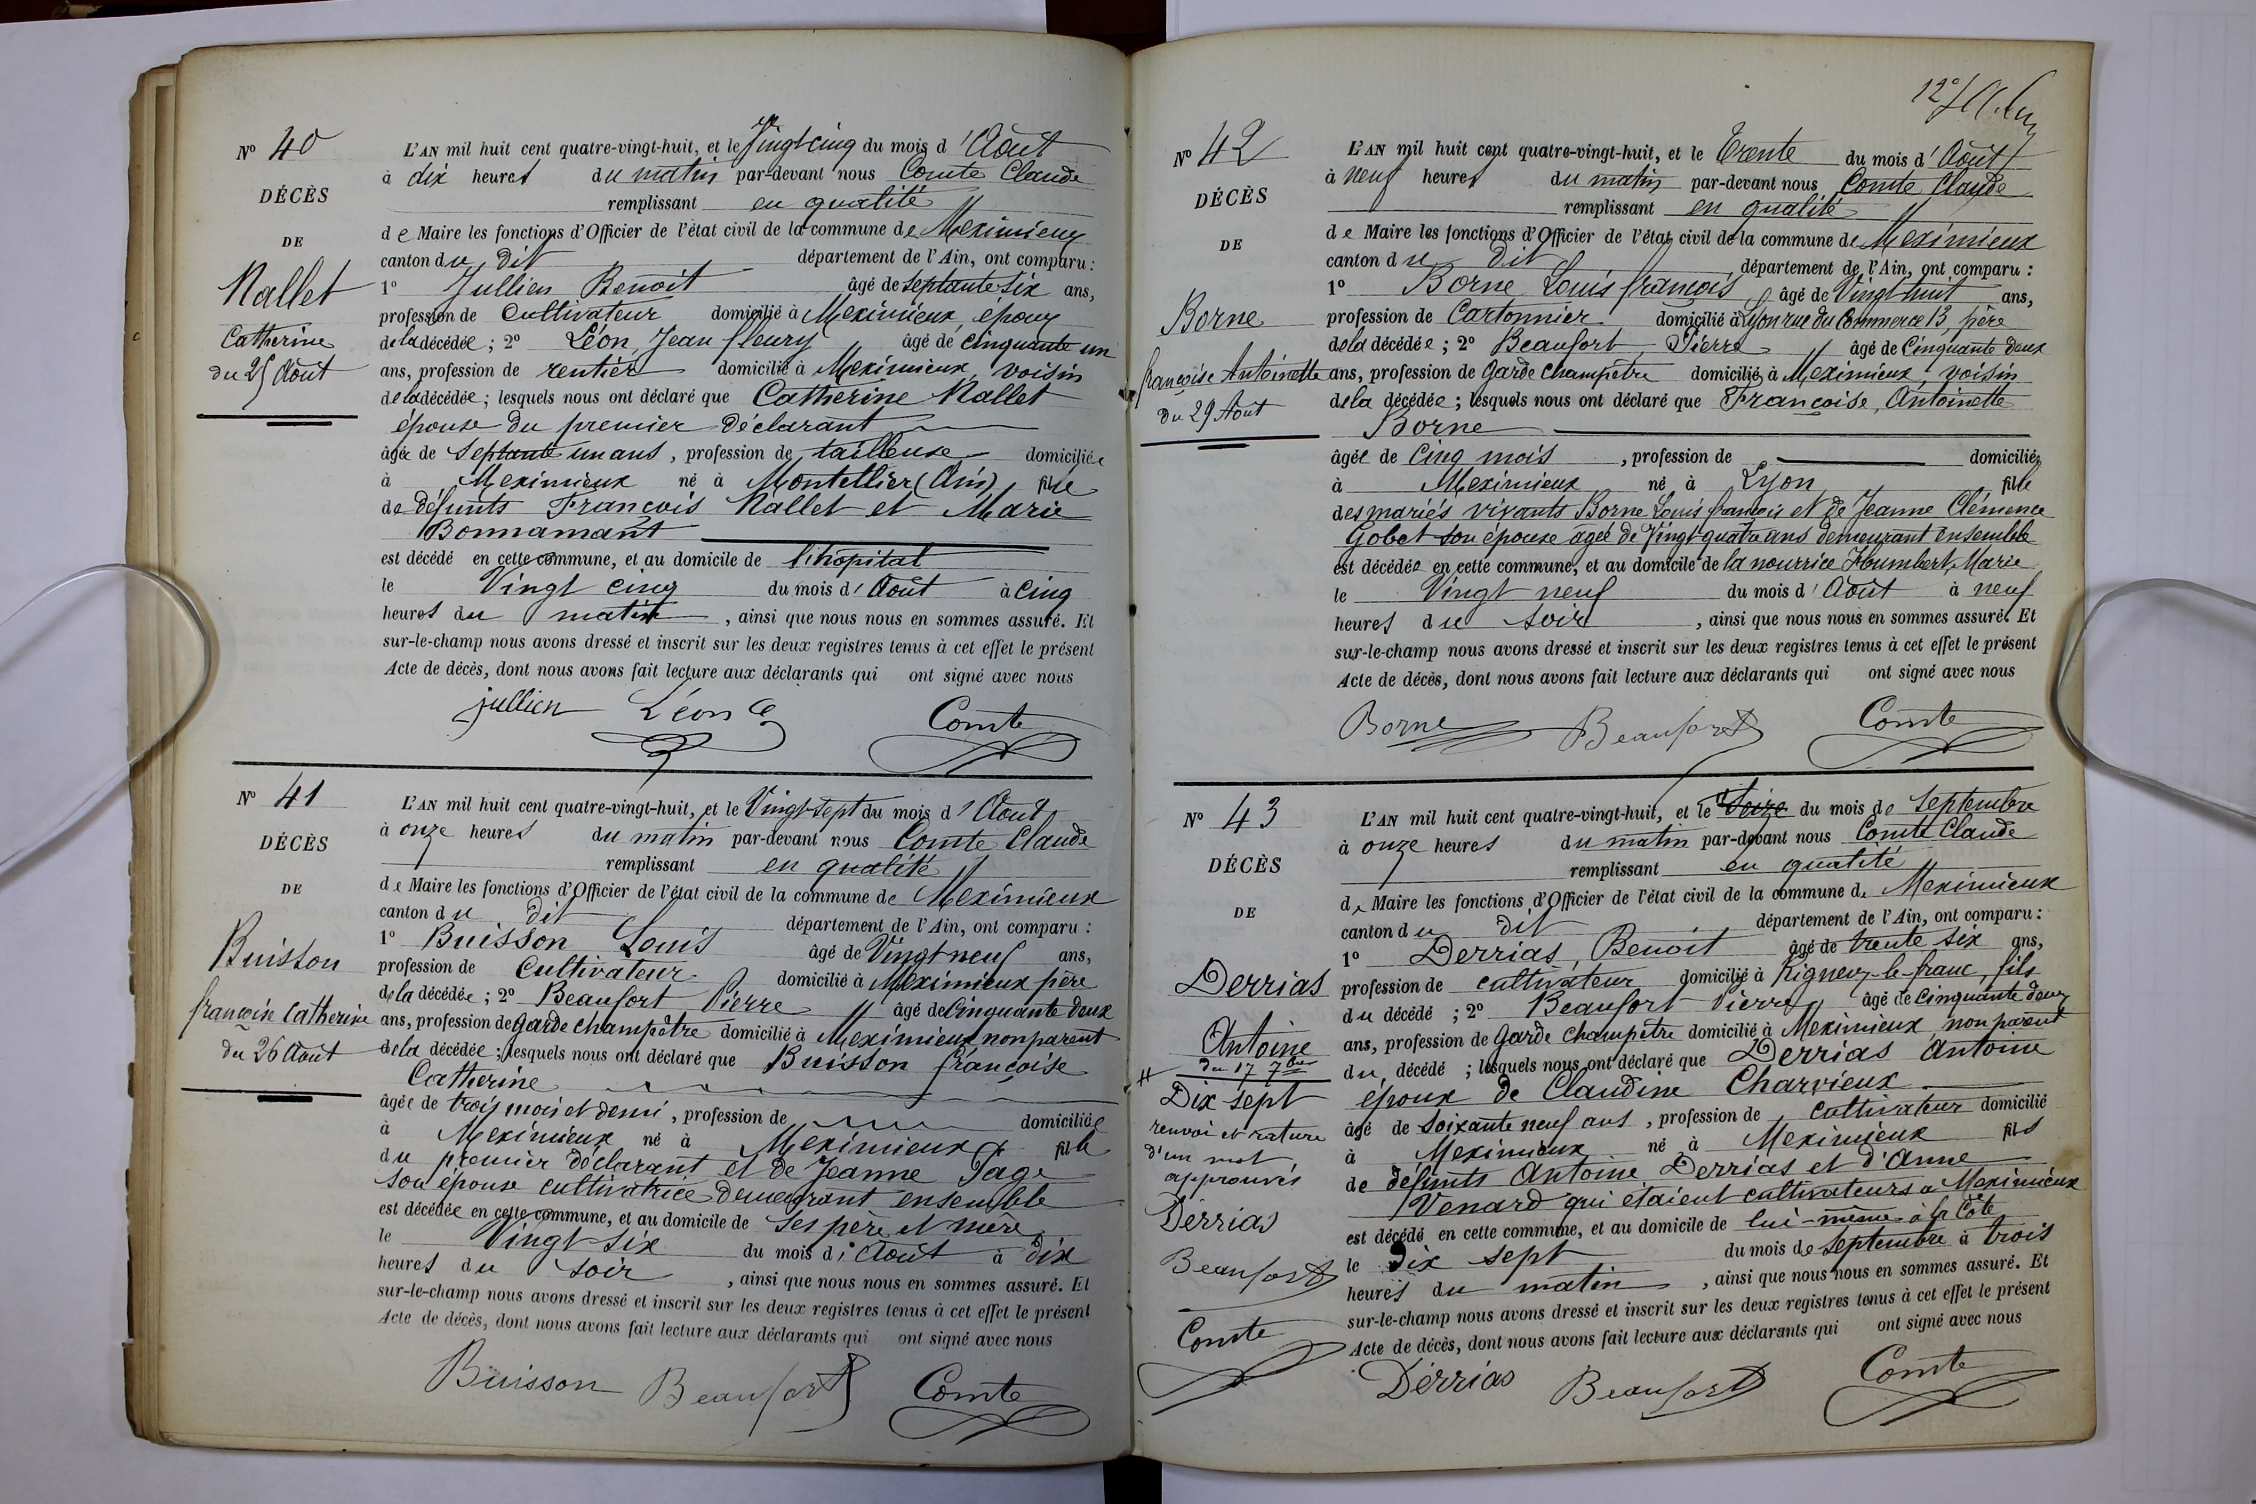 Nº 40
DÉCÈS
DE
Nallet
Catherine
du 25 Août
L'AN mil huit cent quatre-vingt-huit, et le Vingt cinq du mois d'Août
à dix heures du matin par-devant nous Comte Claude
remplissant en qualité
de Maire les fonctions d'Officier de l'état civil de la commune de Meximieux
canton du dit département de l'Ain, ont comparu :
1º Jullien Benoit âgé de septante six ans,
profession de Cultivateur domicilié à Meximieux époux
de la décédée ; 2º Léon, Jean fleury âgé de cinquante un
ans, profession de rentier domicilié à Meximieux voisin
de la décédée ; lesquels nous ont déclaré que Catherine Nallet
épouse du premier déclarant
âgée de septante un ans, profession de tailleuse domiciliée
à Meximieux né à Montellier (Ain) fille
de défunts François Nallet et Marie
Bonnamant
est décédé en cette commune, et au domicile de l'hôpital
le Vingt cinq du mois d'Août à cinq
heures du matin, ainsi que nous nous en sommes assuré. Et
sur-le-champ nous avons dressé et inscrit sur les deux registres tenus à cet effet le présent
Acte de décès, dont nous avons fait lecture aux déclarants qui ont signé avec nous
jullien Léon Comte
Nº 41
DÉCÈS
DE
Buisson
françoise Catherine
du 26 Août
L'AN mil huit cent quatre-vingt-huit, et le Vingt-sept du mois d'Août
à onze heures du matin par-devant nous Comte Claude
remplissant en qualité
de Maire les fonctions d'Officier de l'état civil de la commune de Meximieux
canton du dit département de l'Ain, ont comparu :
1º Buisson Louis âgé de Vingt neuf ans,
profession de Cultivateur domicilié à Meximieux père
de la décédée ; 2º Beaufort Pierre âgé de Cinquante Deux
ans, profession de garde champêtre domicilié à Meximieux non parent
de la décédée ; lesquels nous ont déclaré que Buisson françoise
Catherine
âgée de trois mois et demi, profession de domiciliée
à Meximieux né à Meximieux fille
du premier déclarant et de Jeanne Page
son épouse cultivatrice demeurant ensemble
est décédée en cette commune, et au domicile de ses père et mère
le Vingt six du mois d'Août à dix
heures du soir, ainsi que nous nous en sommes assuré. Et
sur-le-champ nous avons dressé et inscrit sur les deux registres tenus à cet effet le présent
Acte de décès, dont nous avons fait lecture aux déclarants qui ont signé avec nous
Buisson Beaufort Comte
Nº 42
DÉCÈS
DE
Borne
françoise Antoinette
du 29 Août
L'AN mil huit cent quatre-vingt-huit, et le Trente du mois d'Août
à neuf heures du matin par-devant nous Comte Claude
remplissant en qualité
de Maire les fonctions d'Officier de l'état civil de la commune de Meximieux
canton du dit département de l'Ain, ont comparu :
1º Borne Louis françois âgé de Vingt huit ans,
profession de Cartonnier domicilié à Lyon rue du Commerce 13, père
de la décédée ; 2º Beaufort Pierre âgé de Cinquante deux
ans, profession de garde champêtre domicilié à Meximieux voisin
de la décédée ; lesquels nous ont déclaré que Françoise, Antoinette
Borne
âgée de cinq mois, profession de domiciliée
à Meximieux né à Lyon fille
des mariés vivants Borne Louis françois et de Jeanne Clémence
Gobet son épouse âgée de Vingt quatre ans demeurant ensemble
est décédée en cette commune, et au domicile de la nourrice Humbert, Marie
le Vingt neuf du mois d'Août à neuf
heures du soir, ainsi que nous nous en sommes assuré. Et
sur-le-champ nous avons dressé et inscrit sur les deux registres tenus à cet effet le présent
Acte de décès, dont nous avons fait lecture aux déclarants qui ont signé avec nous
Borne Beaufort Comte
Nº 43
DÉCÈS
DE
Derrias
Antoine
du 17 7bre
Dix sept
renvoi et rature
d'un mot
approuvés
Derrias
Beaufort
Comte
L'AN mil huit cent quatre-vingt-huit, et le Seize du mois de septembre
à onze heures du matin par-devant nous Comte Claude
remplissant en qualité
de Maire les fonctions d'Officier de l'état civil de la commune de Meximieux
canton du dit département de l'Ain, ont comparu :
1º Derrias, Benoit âgé de trente six ans,
profession de cultivateur domicilié à Rigneux-le-franc, fils
du décédé ; 2º Beaufort Pierre âgé de cinquante deux
ans, profession de garde champêtre domicilié à Meximieux non parent
du décédé ; lesquels nous ont déclaré que Derrias Antoine
époux de Claudine Charvieux
âgé de soixante neuf ans, profession de cultivateur domicilié
à Meximieux né à Meximieux fils
de défunts Antoine Derrias et d'Anne
Venard qui étaient cultivateurs a Meximieux
est décédé en cette commune, et au domicile de lui-même à la Côte
le Dix sept du mois de septembre à trois
heures du matin, ainsi que nous nous en sommes assuré. Et
sur-le-champ nous avons dressé et inscrit sur les deux registres tenus à cet effet le présent
Acte de décès, dont nous avons fait lecture aux déclarants qui ont signé avec nous
Derrias Beaufort Comte